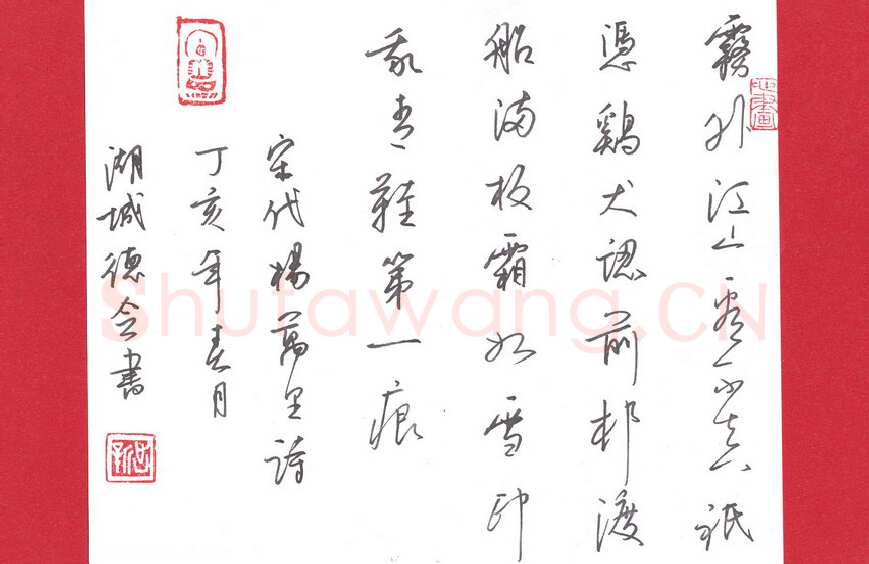 霧外江山看不真祇
憑鷄犬認前邨渡
船满板霜如雪印
我青鞋第一痕
宋代楊萬里詩
丁亥年春月
湖城德会書
Shufawang.CN